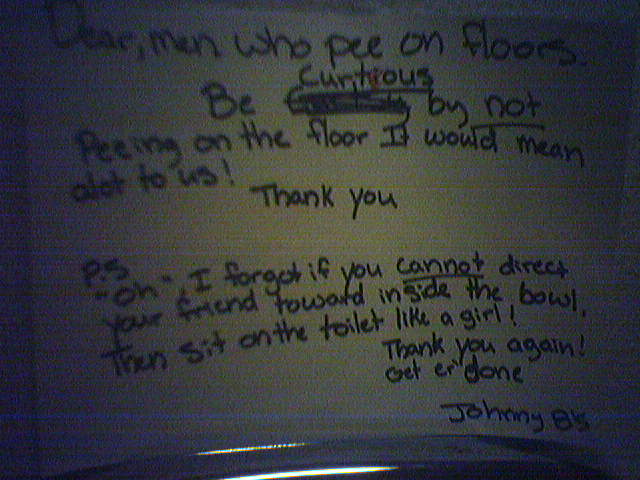 Dear, men who pee on floors.
Curitious
Be by not
Peeing on the floor It would mean
alot to us!
Thank you
P.S
"oh", I forgot if you cannot direct
your friend toward inside the bowl,
Then sit on the toilet like a girl!
Thank you again!
Get er' done
Johnny B's